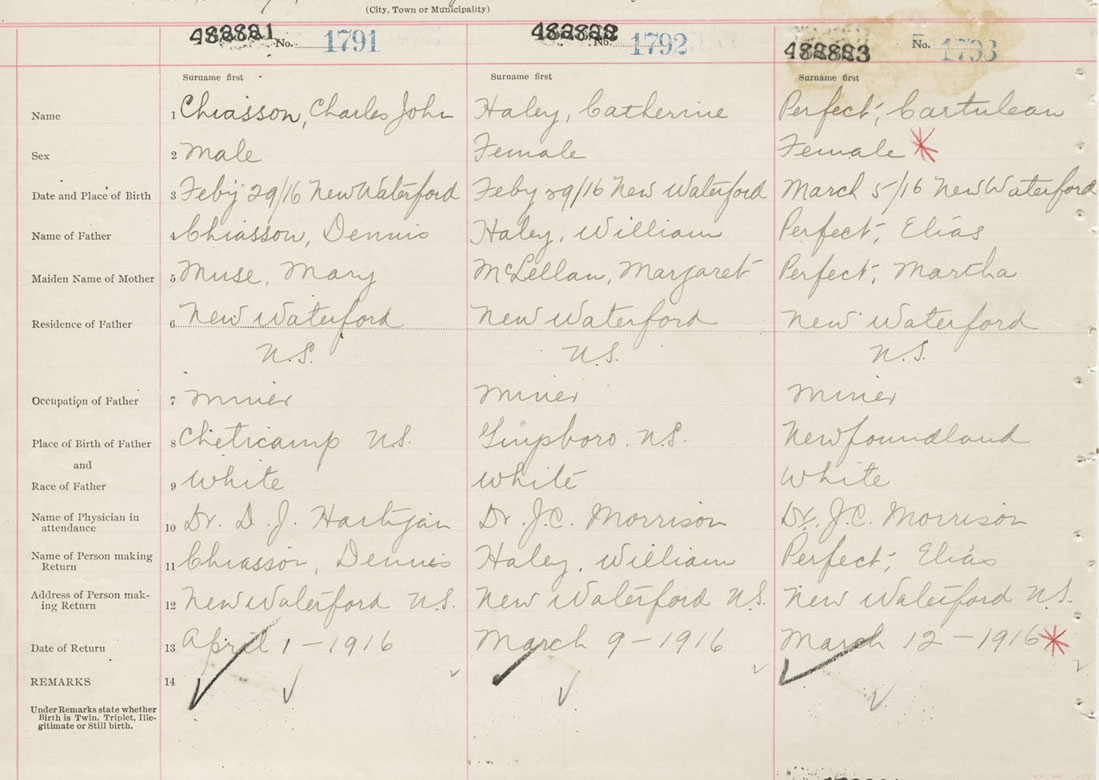 (City, Town or Municipality)
488881 No. 1791 488882 No. 1792 488883 No. 1793
Surname first Surname first Surname first
Name 1 Chiasson, Charles John Haley, Catherine Perfect, Cartulean
Sex 2 Male Female Female *
Date and Place of Birth 3 Feby 29/16 New Waterford Feby 29/16 New Waterford March 5/16 New Waterford
Name of Father 4 Chiasson, Dennis Haley, William Perfect, Elias
Maiden Name of Mother 5 Muse, Mary McLellan, Margaret Perfect, Martha
Residence of Father 6 New Waterford New Waterford New Waterford
N.S. N.S. N.S.
Occupation of Father 7 Miner Miner Miner
Place of Birth of Father 8 Cheticamp N.S. N.S. Newfoundland
and
Race of Father 9 White White White
Name of Physician in
attendance 10 Dr. D. J. Hartigan Dr. J.C. Morrison Dr. J.C. Morrison
Name of Person making
Return 11 Chiasson, Dennis Haley, William Perfect, Elias
Address of Person mak-
ing Return 12 New Waterford N.S. New Waterford N.S. New Waterford N.S.
Date of Return 13 April 1-1916 March 9-1916 March 12-1916 *
REMARKS 14
Under Remarks state whether
Birth is Twin, Triplet, Ille-
gitimate or Still birth.